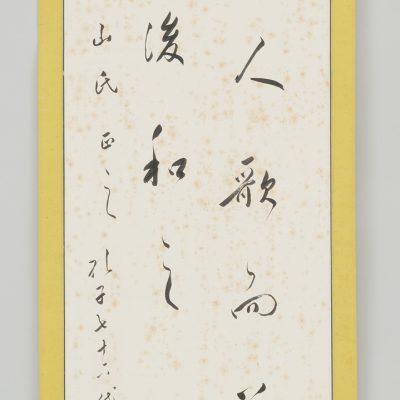 人歌而善
後和之
山氏正之 孔子七十六代